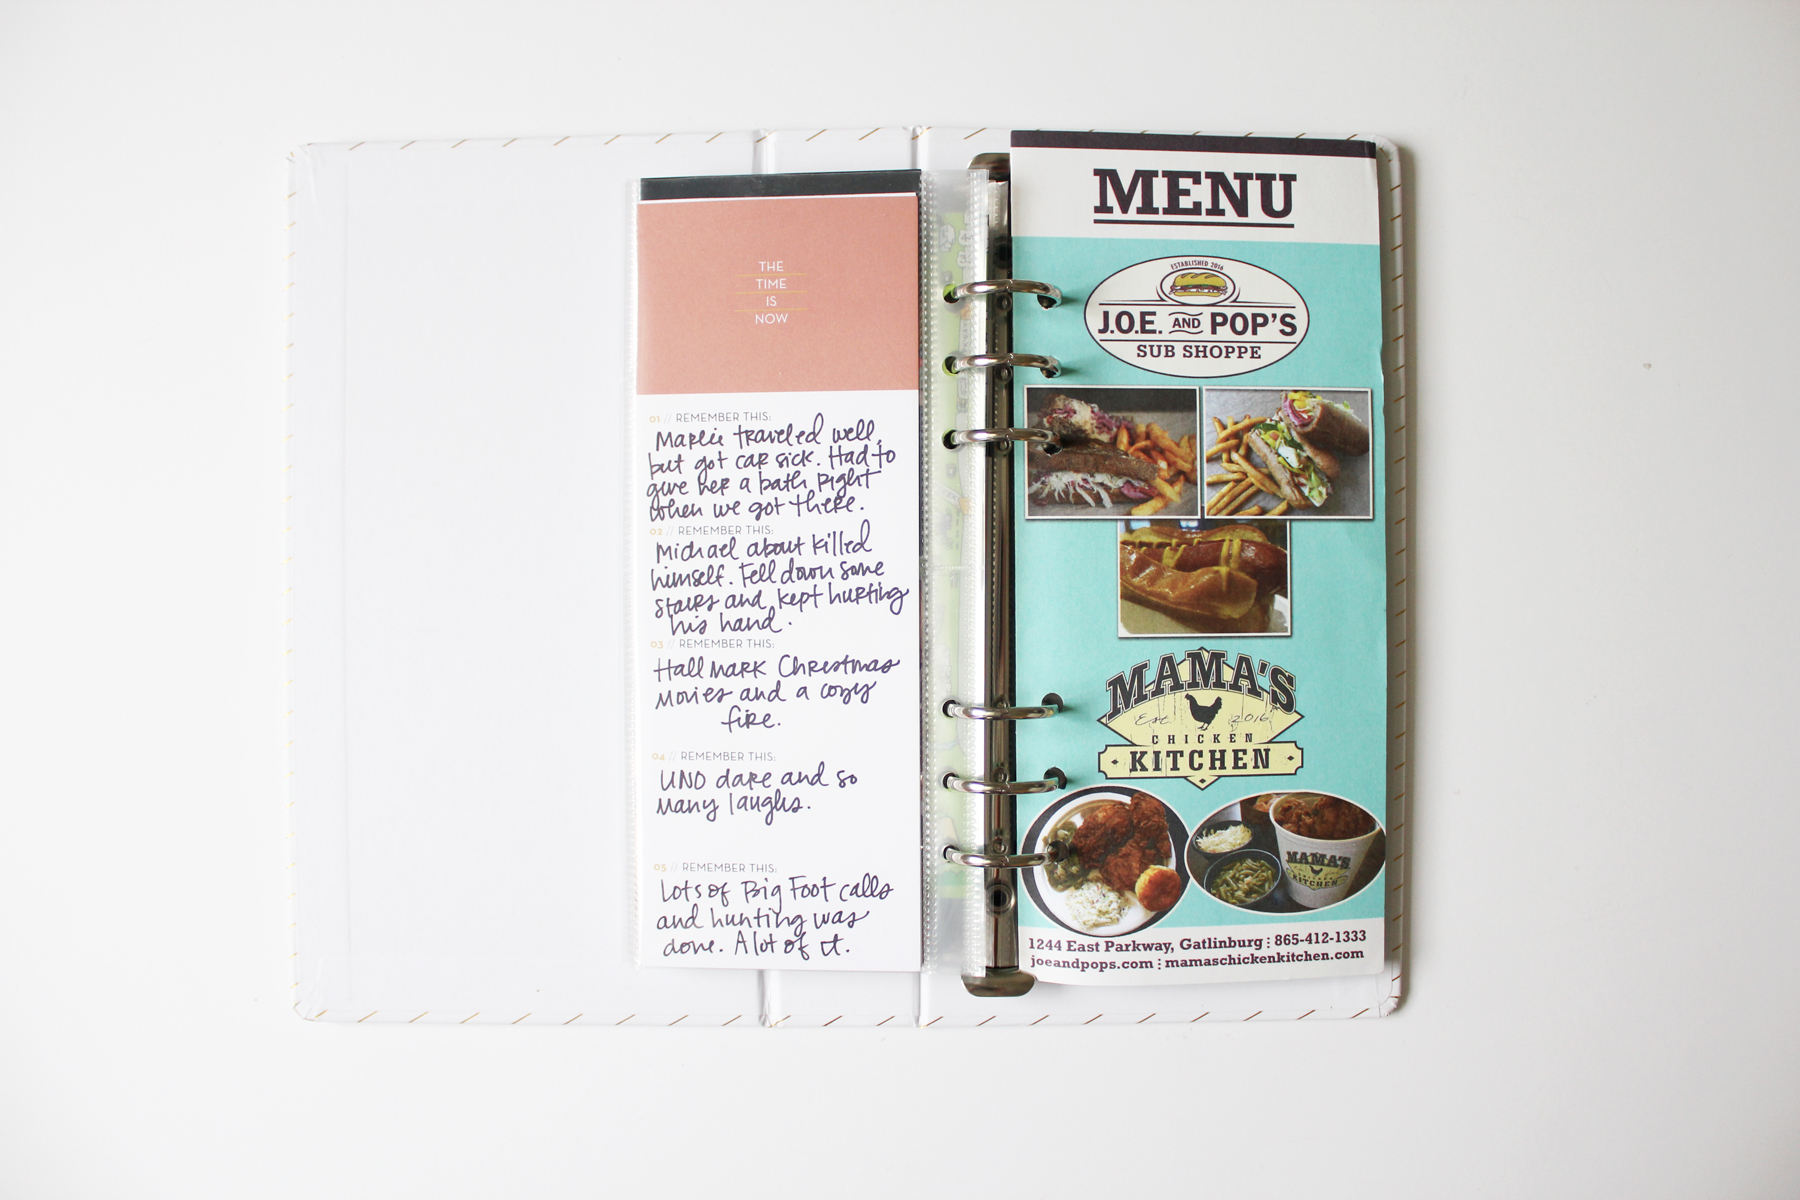 THE
TIME
IS
NOW
01 // REMEMBER THIS:
Marlie traveled well,
but got car sick. Had to
give her a bath right
when we got there.
02 // REMEMBER THIS:
Michael about killed
himself. Fell down some
stairs and kept hurting
his hand.
03 // REMEMBER THIS:
Hallmark Christmas
Movies and a cozy
fire.
04 // REMEMBER THIS:
UNO dare and so
many laughs.
05 // REMEMBER THIS:
Lots of Big Foot calls
and hunting was
done. A lot of it.
MENU
ESTABLISHED 2016
J.O.E. AND POP'S
SUB SHOPPE
MAMA'S
Est. 2016
CHICKEN
KITCHEN
MAMA'S
CHICKEN
KITCHEN
1244 East Parkway, Gatlinburg ⋮ 865-412-1333
joeandpops.com ⋮ mamaschickenkitchen.com